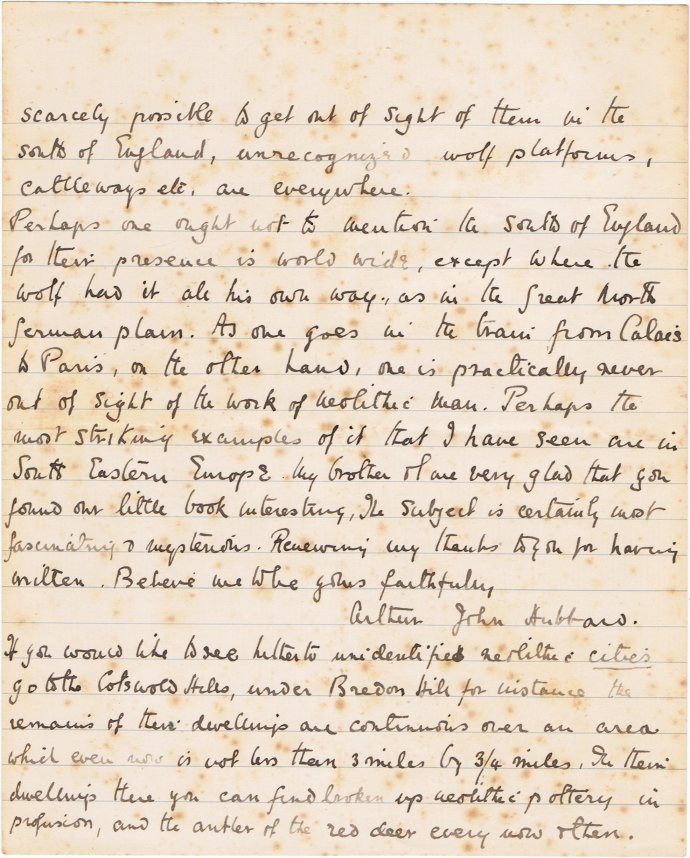 scarcely possible to get out of sight of them in the
south of England, unrecognized wolf platforms,
cattleways etc, are everywhere.
Perhaps one ought not to mention the south of England
for their presence is world wide, except where the
wolf had it all his own way, as in the great North
German plain. As one goes in the train from Calais
to Paris, on the other hand, one is practically never
out of sight of the work of neolithic man. Perhaps the
most striking examples of it that I have seen are in
South Eastern Europe. My brother & I are very glad that you
found our little book interesting, The subject is certainly most
fascinating & mysterious. Renewing my thanks to you for having
written. Believe me to be yours faithfully
Arthur John Hubbard.
If you would like to see hitherto unidentified neolithic cities
go to the Cotswold Hills, under Bredon Hill for instance the
remains of their dwellings are continuous over an area
which even now is not less than 3 miles by 3/4 miles. In their
dwellings there you can find broken up neolithic pottery in
profusion, and the antler of the red deer every now & then.